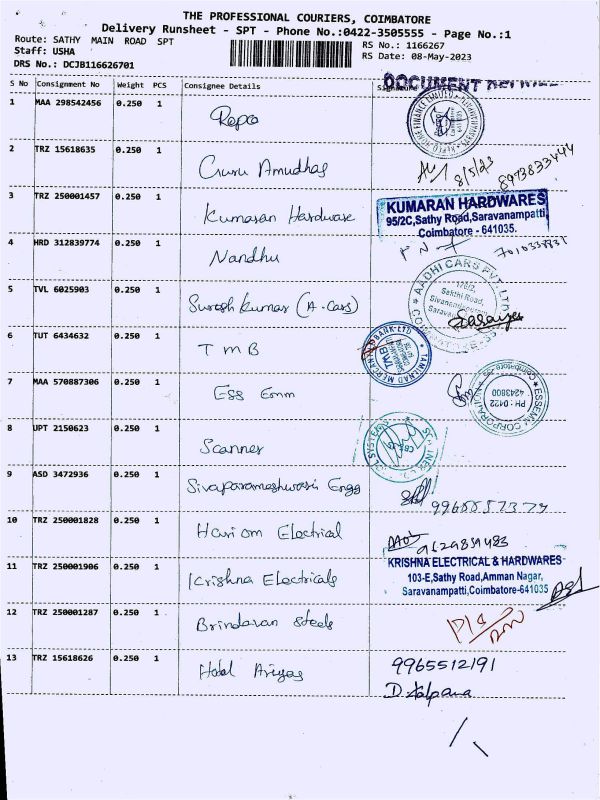 THE PROFESSIONAL COURIERS, COIMBATORE
Delivery Runsheet - SPT - Phone No.:0422-3505555 - Page No.:1
Route: SATHY MAIN ROAD SPT
RS No.: 1166267
Staff: USHA
RS Date: 08-May-2023
DRS No.: DCJB116626701
DOCUMENT
S No Consignment No Weight PCS Consignee Details
1 MAA 298542456 0.250 1 Repco
2 TRZ 15618635 0.250 1 Guru Amudhas
8/5/23 8973833444
3 TRZ 250001457 0.250 1 Kumaran Hardware
KUMARAN HARDWARES
95/2C,Sathy Road,Saravanampatti,
Coimbatore - 641035.
4 HRD 312839774 0.250 1 Nandhu
5 TVL 6025903 0.250 1 Suresh Kumar (A-Cars)
AADHI CARS PVT LTD
Sakthi Road,
6 TUT 6434632 0.250 1 T M B
TAMILNAD MERCANTILE BANK LTD
TMB
7 MAA 570887306 0.250 1 Ess Emm
ESSEMM CORPORATION
Coimbatore
PH : 0422
4243800
8 UPT 2150623 0.250 1 Scanner
9 ASD 3472936 0.250 1 Sivaparameshwari Engg
10 TRZ 250001828 0.250 1 Hari om Electrical
9629859483
11 TRZ 250001906 0.250 1 Krishna Electricals
KRISHNA ELECTRICAL & HARDWARES
103-E,Sathy Road,Amman Nagar,
Saravanampatti,Coimbatore-641035
12 TRZ 250001287 0.250 1 Brindavan Steels
13 TRZ 15618626 0.250 1 Hotel Ariyas
9965512191
D. Kalpana